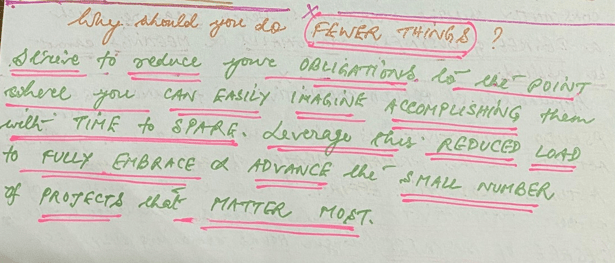 Why should you do FEWER THINGS ?
Strive to reduce your OBLIGATIONS to the POINT
where you CAN EASILY IMAGINE ACCOMPLISHING them
with TIME to SPARE. Leverage this REDUCED LOAD
to FULLY EMBRACE & ADVANCE the SMALL NUMBER
of PROJECTS that MATTER MOST.